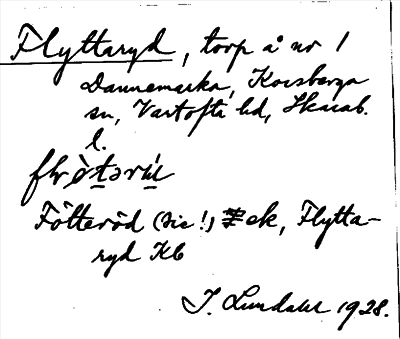 Flyttaryd, torp å nr 1
Dannemarka, Korsberga
sn, Vartofta hd, Skarab.
l.
Fötteröd (sic!) ek, Flytta-
ryd Kb
J. Lundahl 1928.